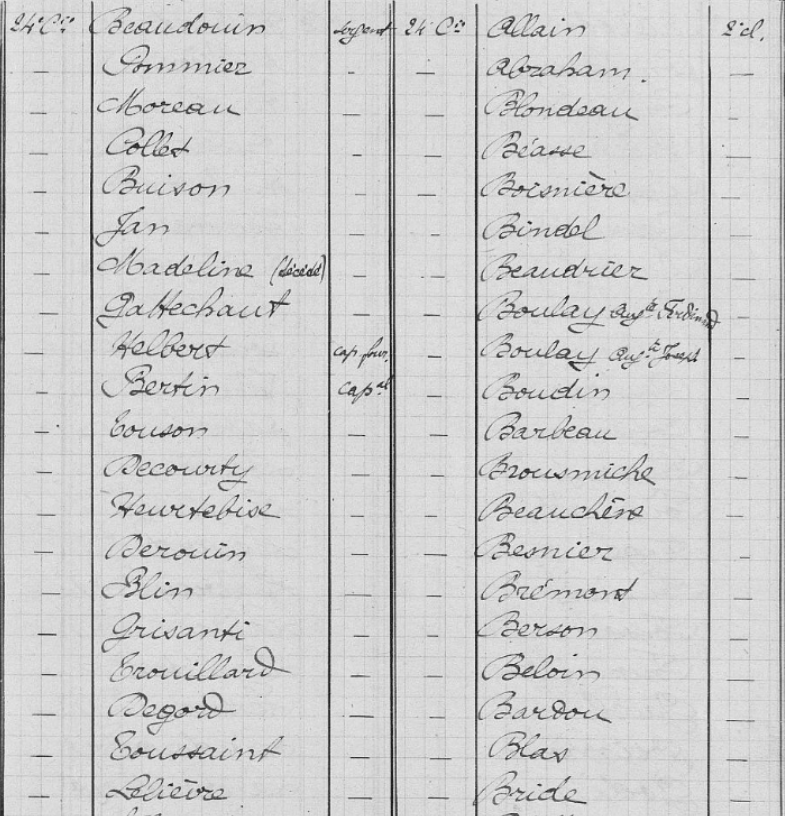 24e Cie Beaudouin sergent 24 Cie Allain 2e cl.
— Pommier - — Abraham. —
— Moreau - — Blondeau —
— Collet - — Béasse —
— Buison - — Boisnière —
— Jan - — Bindel —
— Madeline (décédé) — — Beaudrier —
— Gattechaut — — Boulay Augte Ferdinand
— Helbert cap. four. — Boulay Augte Joseph —
— Bertin capal — Boudin —
— Touson — — Barbeau —
— Decourty — — Brousmiche —
— Heurtebise — — Beauchêne —
— Derouin — — Besnier —
— Blin — — Brémont —
— Grisanti — — Berson —
— Trouillard — — Beloin —
— Degord — — Bardou —
— Toussaint — — Blas —
— Lelièvre — — Bride —